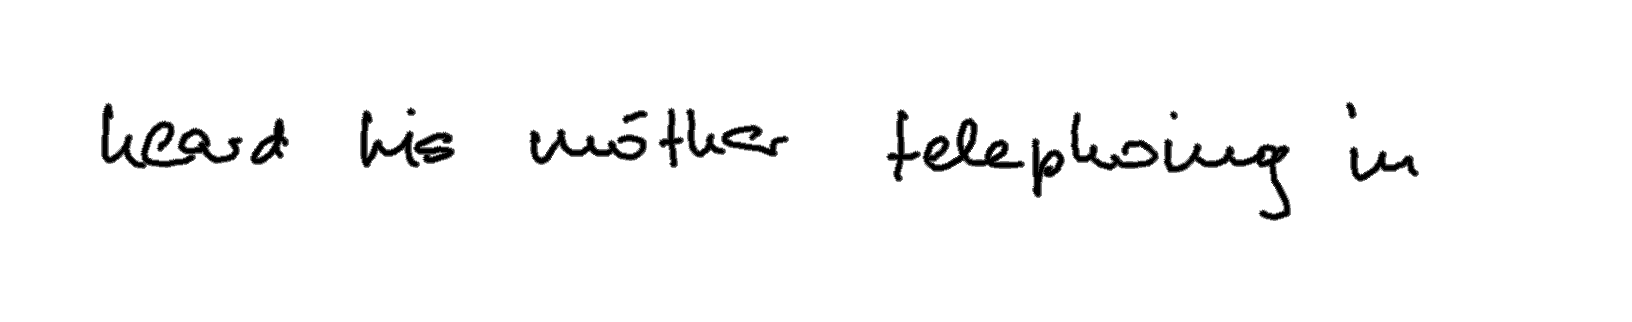 heard his mother telephoing in